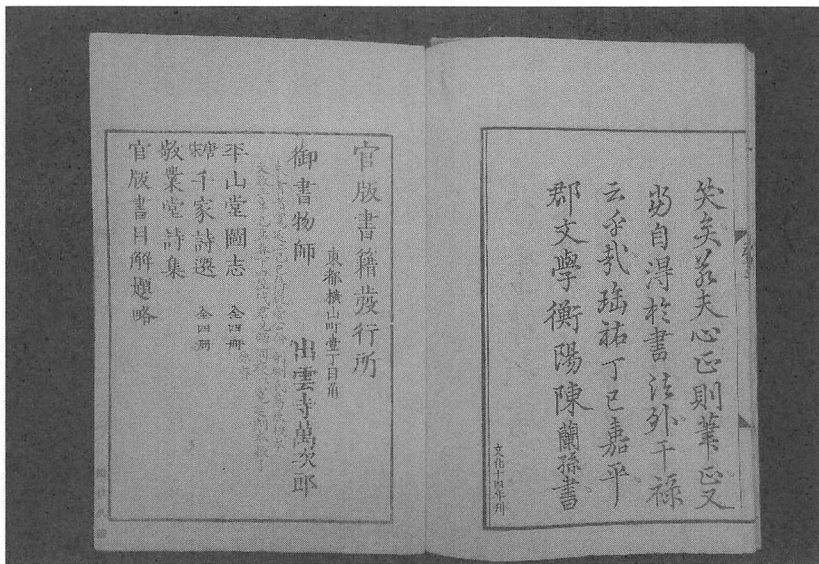 笑矣若夫心正則筆正又
當自得於書法外干祿
云乎哉瑶祐丁巳嘉平
郡文學衡陽陳蘭孫書
文化十四年刊
官版書籍發行所
東都横山町壹丁目角
御書物師 出雲寺萬次郎
平山堂圖志 全四冊
唐宋千家詩選 全四冊
敬業堂詩集
官版書目解題略